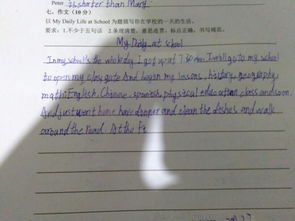 Peter is shorter than Mary.
七、作文（10分）
以 My Daily Life at School 为题描写你在学校的一天的生活。
要求：1.不少于五句话 2.条理清楚，意思连贯，标点正确，书写规范。
My Daily at school
In my school's the whole day. I got up at 7 to school
to open my class gate And began my lessons, history, geography
math, English, Chinese, spanish, physical education class and soon.
And just went home have dinner and clean the dishes and walk
around the road. At the